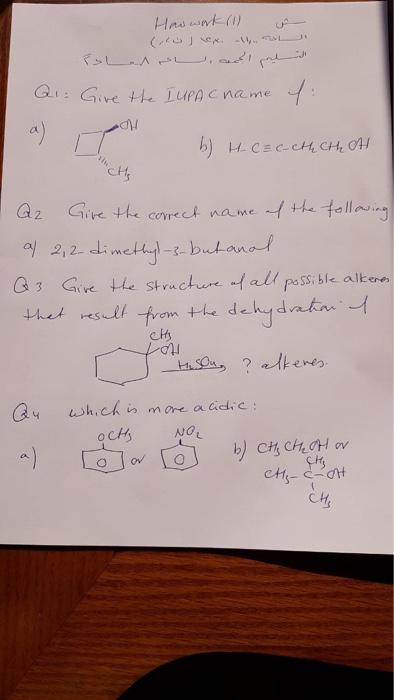 Homework (1)
Q1: Give the IUPAC name of:
a) OH CH₃ b) H-C≡C-CH₂CH₂OH
Q2 Give the correct name of the following
a/ 2,2-dimethyl-3-butanol
Q3 Give the structure of all possible alkenes
that result from the dehydration of
CH₃
OH
H₂SO₄ ? alkenes.
Q4 which is more acidic:
a) OCH₃ or NO₂ b) CH₃CH₂OH or
CH₃
CH₃-C-OH
CH₃